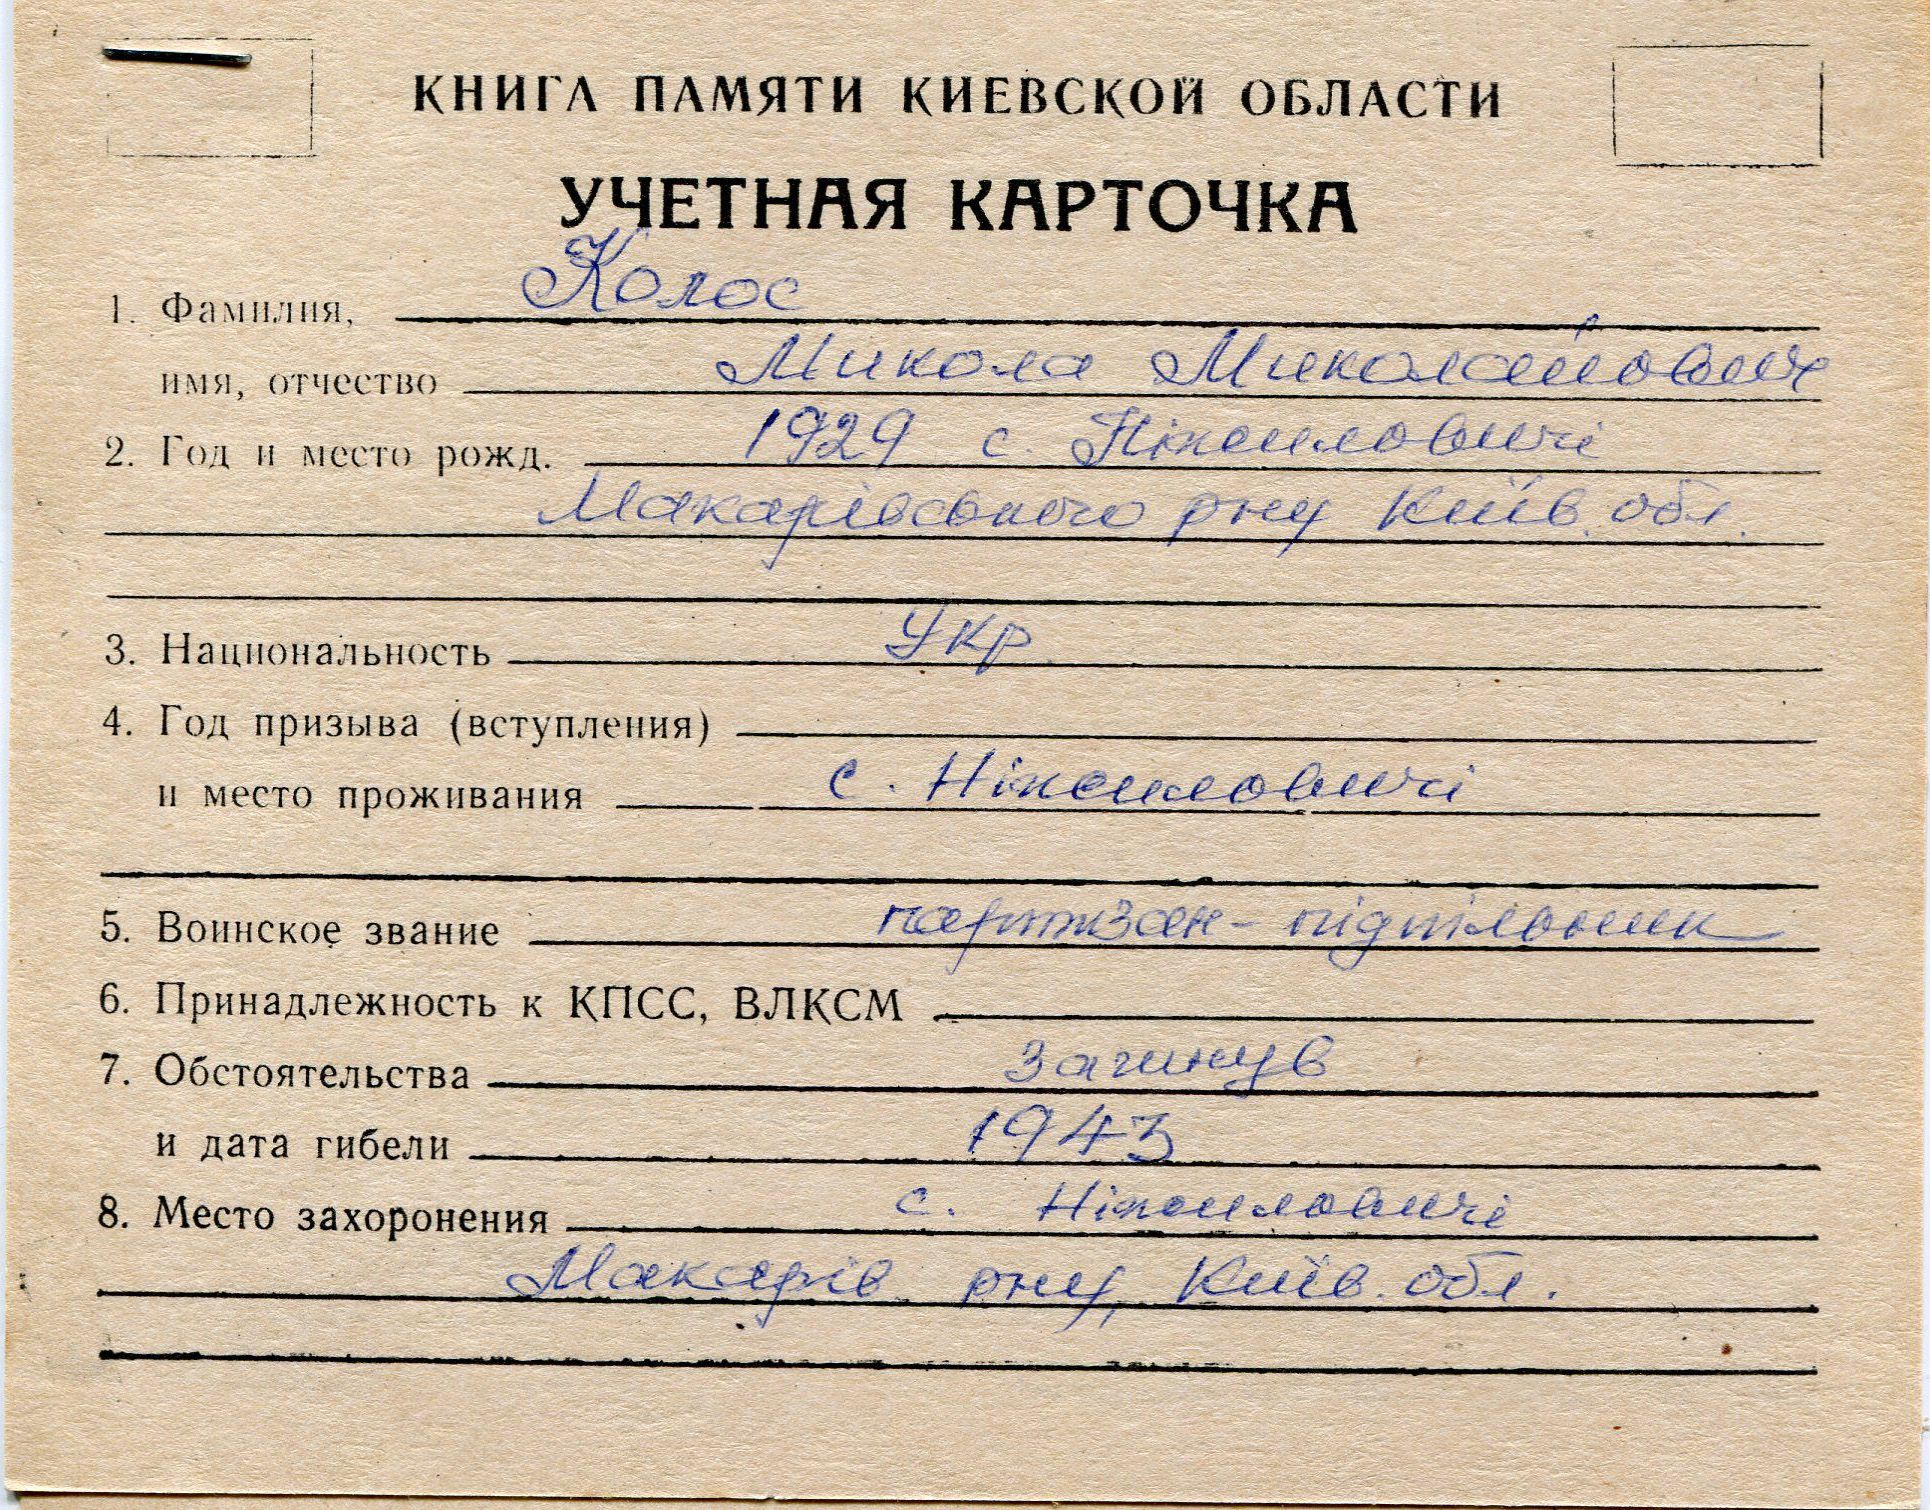 КНИГА ПАМЯТИ КИЕВСКОЙ ОБЛАСТИ
УЧЕТНАЯ КАРТОЧКА
1. Фамилия, Колос
имя, отчество Микола Миколайович
2. Год и место рожд. 1929 с. Ніжиловичі
Макарівського рну Київ. обл.
3. Национальность Укр
4. Год призыва (вступления)
и место проживания с. Ніжиловичі
5. Воинское звание партизан-підпільник
6. Принадлежность к КПСС, ВЛКСМ
7. Обстоятельства загинув
и дата гибели 1943
8. Место захоронения с. Ніжиловичі
Макарів. рну, Київ. обл.